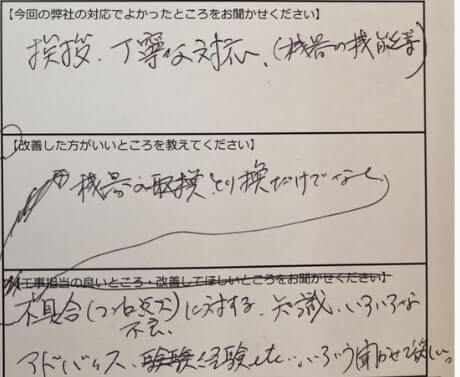 【今回の弊社の対応でよかったところをお聞かせください】
挨拶、丁寧な対応、(機器の機能等)
【改善した方がいいところを教えてください】
機器の取換 とり換だけでなく
【工事担当の良いところ・改善してほしいところをお聞かせください】
不具合 に対する、知識、いろいろな
不良、
アドバイス、経験etc…いろいろ聞かせて欲しい。